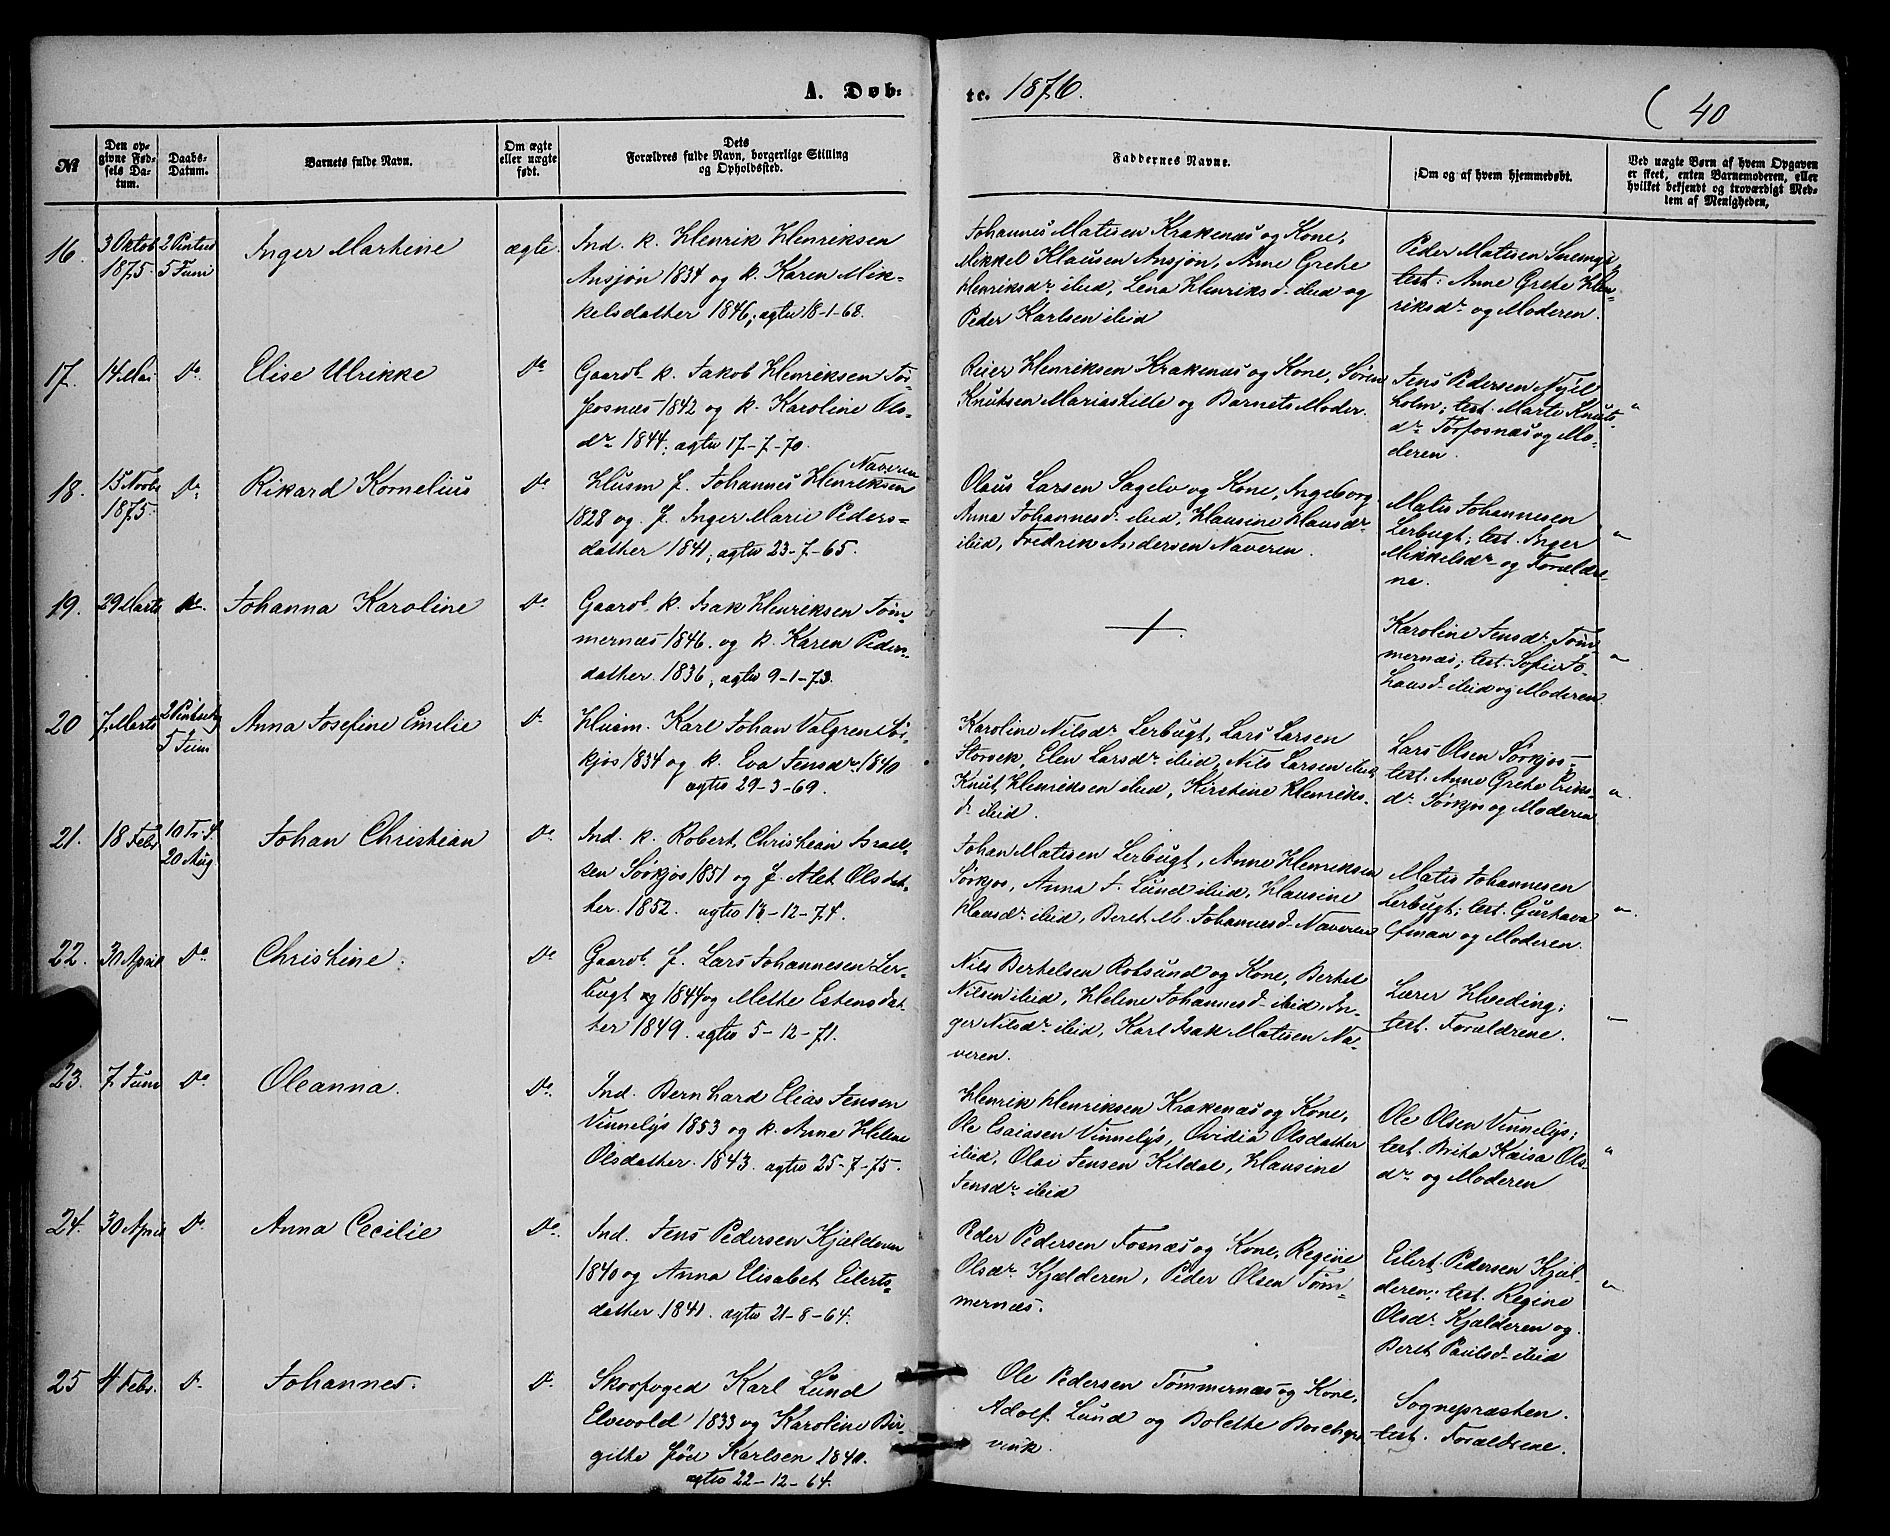 A. Døb-
te. 1876.
( 40
№
Den op-
givne Fød-
sels Da-
tum.
Daabs-
Datum.
Barnets fulde Navn.
Om ægte
eller uægte
født.
Dets
Forældres fulde Navn, borgerlige Stilling
og Opholdssted.
Faddernes Navne.
Om og af hvem hjemmedøbt.
Ved uægte Børn af hvem Opgaven
er skeet, enten Barnemoderen, eller
hvilket bekjendt og troværdigt Med-
lem af Menigheden,
16.
3 Oktob
1875.
5 Juni
Inger Martine
ægte.
Ind. k. Henrik Henriksen
Ansjøn 1834 og k. Karen Mik-
kelsdatter 1846; agtv 18-1-68.
Johannes Matisen Krakenæs og Kone,
Mikkel Klausen Ansjøn, Anne Grete
Henriksdr ibid, Lena Henriksd. ibid og
Peder Karlsen ibid
Peder Matisen
test: Anne Grete Hen-
riksdr og Moderen.
17.
14 Mai
Do.
Elise Ulrikke
Do
Gaardb. k. Jakob Henriksen Tor-
fosnæs 1842 og k. Karoline Ols-
dr. 1844; agtv 17-7-70.
Henriksen Krakenæs og Kone, Søren
Knutsen Mariashilde og Barnets Moder.
Jens Pedersen
holm; test. Marte Knuts-
dr Torfosnæs og Mo-
deren.
"
18.
15 Novbr
1875.
Do.
Rikard Kornelius
Do
Naveren
Husm f. Johannes Henriksen
1828 og f. Inger Marie Peders-
datter 1841, agtv 23-7-65.
Olaus Larsen Sagelv og Kone, Ingeborg
Anna Johannesd. ibid, Hansine Hansdr
ibid, Fredrik Andersen Naveren.
Matis Johannesen
Lerbugt; test. Inger
Mikkelsdr og Forældre-
ne.
"
19.
29 Marts
Do.
Johanna Karoline
Do
Gaardb. k. Isak Henriksen Tøm-
mernæs 1846. og k. Karen Peders-
datter. 1836, agtv 9-1-73.
+
Karoline Jensdr. Tøm-
mernæs; test. Sofie Jo-
hansd. ibid og Moderen.
"
20
7 Marts
5 Juni
Anna Josefine Emilie
Do
Husm. Karl Johan Valgren Sør-
kjos 1834 og k. Eva Jensdr. 1840
agtv 29-3-69.
Karoline Nilsdr. Lerbugt, Lars Larsen
Storvik, Elen Larsdr. ibid, Nils Larsen ibid,
Knut Henriksen ibid, Kirstine Henriks-
d. ibid.
Lars Olsen Sørkjos-
test: Anne Grete Eriks-
dr Sørkjos og Moderen
"
21.
18 Febr
10 Tr. f.
20 Aug
Johan Christian
Do.
Ind. k. Robert Christian Israel-
sen Sørkjos 1851 og f. Alet Olsdat-
ter. 1852. agtv 13-12-74.
Johan Matisen Lerbugt, Anne Henriksen
Sørkjos, Anna J. Lund ibid, Hansine
Hansdr ibid, Beret M. Johannesd. Naveren
Matis Johannesen
Lerbugt; test. Gustava
Efman og Moderen.
"
22.
30 April
Do
Christine.
Do
Gaardb. f. Lars Johannesen Ler-
bugt 1844 og Mette Estensdat-
ter 1849. agtv 5-12-71.
Nils Bertelsen Rotsund og Kone, Bertel
Nilsen ibid, Helene Johannesd. ibid, In-
ger Nilsdr ibid, Karl Isak Matisen Na-
veren.
Lærer Hveding;
test. Forældrene.
"
23.
7 Juni
Do
Oleanna.
Do.
Ind. Bernhard Elias Jensen
Vinnelys 1853 og k. Anne Helene
Olsdatter. 1843. agtv 25-7-75.
Henrik Henriksen Krakenæs og Kone,
Ole Esaiasen Vinnelys, Ovidia Olsdatter
ibid, Olai Jensen Kildal, Hansine
Jensdr ibid
Ole Olsen Vinnelys;
test. Brita Kaisa Ols-
dr. og Moderen
"
24.
30 April
Do.
Anna Cecilie
Do.
Ind. Jens Pedersen Kjælderen
1840 og Anna Elisabet Eilerts-
datter. 1841. agtv 21-8-64.
Peder Pedersen Fosnæs og Kone, Regine
Olsdr. Kjælderen, Peder Olsen Tøm-
mernæs.
Eilert Pedersen Kjæl-
deren; test. Regine
Olsdr. Kjælderen og
Beret Paulsd. ibid
"
25
4 Febr.
Do.
Johannes.
Do.
Skovfoged Karl Lund
Elvevold 1833 og Karoline Bir-
gitte Karlsen 1840.
agtv 22-12-64.
Ole Pedersen Tømmernæs og Kone,
Adolf Lund og Bolette
vink.
Sognepræsten.
test. Forældrene.